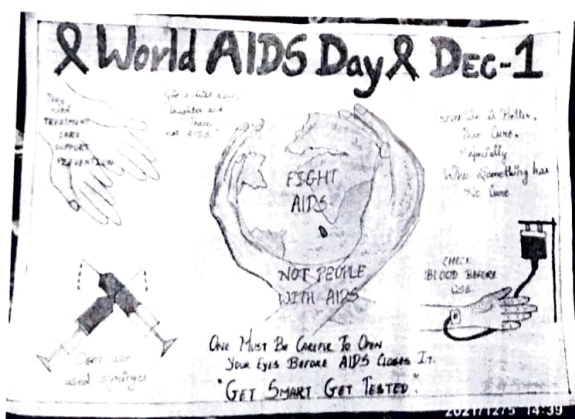 World AIDS Day Dec-1
They
need
TREATMENT
CARE
SUPPORT
PREVENTION
Give a child love,
laughter and
Peace,
not AIDS
Prevention is Better
Than Cure.
Especially
When Something has
No Cure
FIGHT
AIDS
NOT PEOPLE
WITH AIDS
CHECK
BLOOD BEFORE
USE
Don't use
used syringes
ONE MUST BE CAREFUL TO OPEN
YOUR EYES BEFORE AIDS CLOSES IT.
"GET SMART GET TESTED."
2021/12/5 14:39